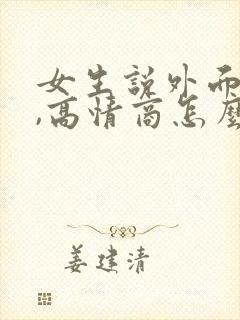 女生說外面
,高情商怎麼
姜建清